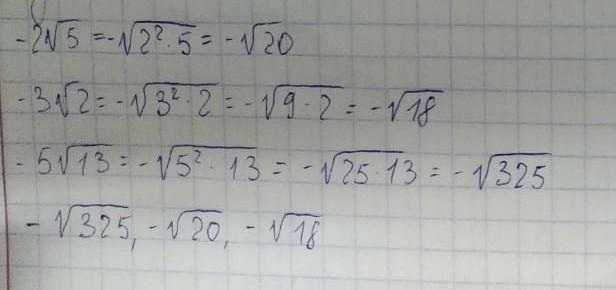 -2√5 = -√2²·5 = -√20
-3√2 = -√3²·2 = -√9·2 = -√18
-5√13 = -√5²·13 = -√25·13 = -√325
-√325, -√20, -√18